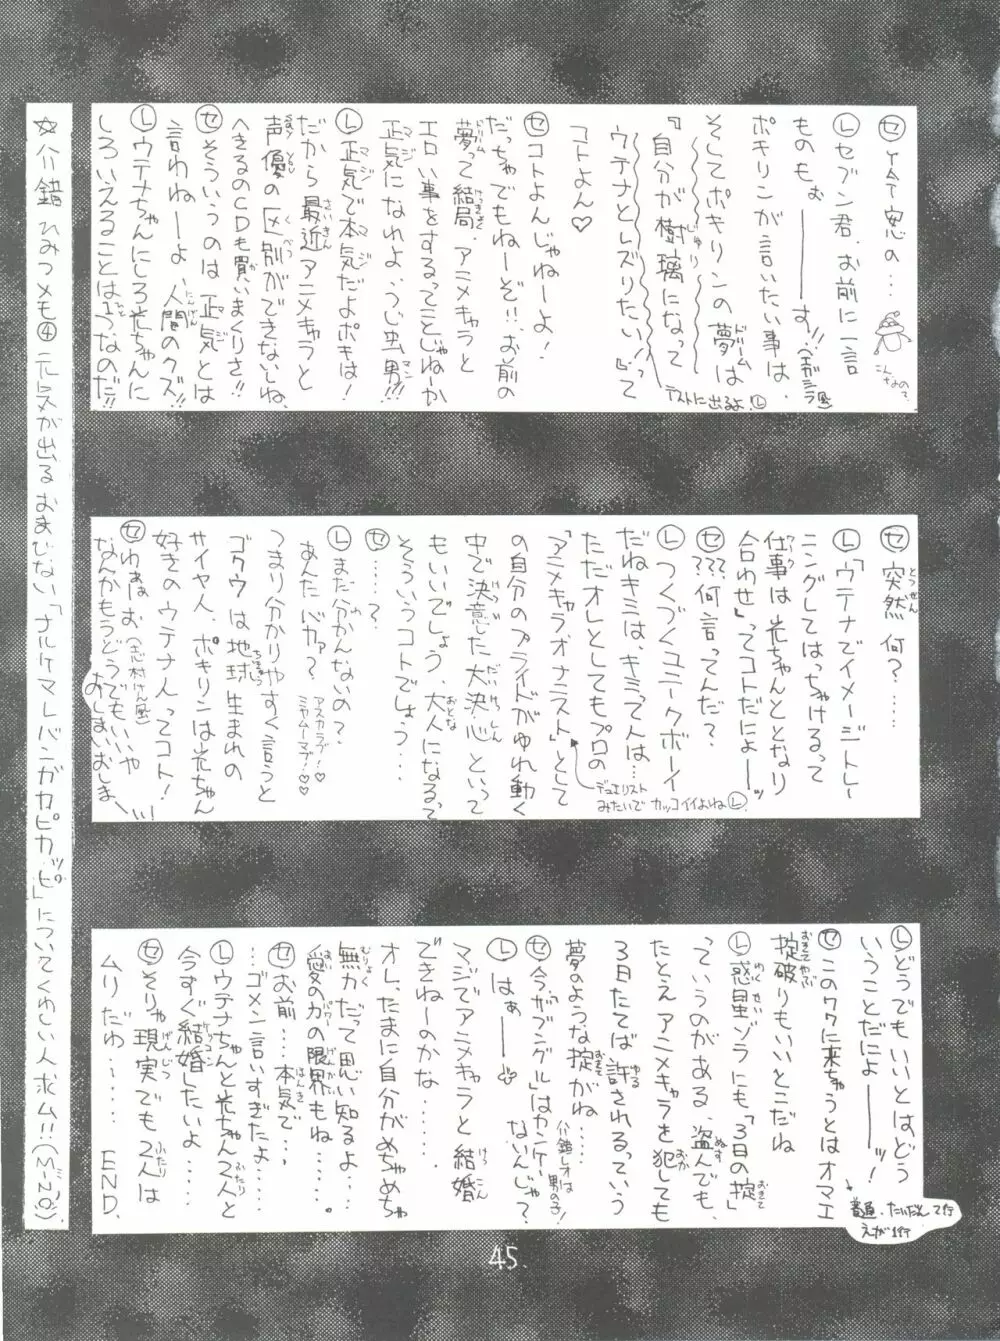 セ YAT安心の…
こんなので
L セブン君、お前に一言
ものもぉ―――す!!
ポキリンが言いたい事は、
そしてポキリンの夢は
『自分が樹璃になって
ウテナとレズりたい!!』って
コトよん♡
テストに出るよ!L
セ コトよんじゃねーよ!
だっちゃでもねーぞ!!、お前の
夢って結局、アニメキャラと
エロい事をするってことじゃねーか
正気になれよ、うじ虫男!!!
L 正気で本気だよポキは!
だから最近アニメキャラと
声優の区別ができないしね、
へきるのCDも買いまくりさ!!
セ そういうのは正気とは
言わねーよ、人間のクズ!!
L ウテナちゃんにしろ光ちゃんに
しろいえることは1つなのだ!!
セ 突然何?……
L「ウテナでイメージトレー
ニングしてはっちゃけるって
仕事は光ちゃんととなり
合わせ」ってコトだにょ――ッ
セ ???何言ってんだ?
L つくづくユニークボーイ
だねキミは、キミって人は…
ただオレとしてもプロの
「アニメキャラオナニスト」として
の自分のプライドがゆれ動く
中で決意した大決心といって
もいいでしょう、大人になるって
そういうコトでしょう…
デュエリスト
みたいでカッコイイよねL
セ ……?
L まだ分かんないの?
あんたバカァ?
アスカラブ!♡
ミヤムーマブ!♡♡
つまり分かりやすく言うと
ゴクウは地球生まれの
サイヤ人、ポキリンは光ちゃん
好きのウテナ人ってコト!
セ ゆぁぉぉ(志村けん風)
なんかもうどうでもいいや
おしまいおしまーい!!
L どうでもいいとはどう
いうことだにょ―――ッ!
セ このワクに来ちゃうとはオマエ
掟破りもいいとこだね
普通、たいだんって行
えが1行
L 惑星ゾラにも「3日の掟」
っていうのがある、盗んでも、
たとえアニメキャラを犯しても
3日たてば許されるっていう
夢のような掟がね……
セ 今、ザブングルはカンケイ
ないんじゃ?
介錯レオは
男の子!
L はぁ――
マジでアニメキャラと結婚
できねーのかな……
オレ、たまに自分がめちゃめちゃ
無力だって思い知るよ…
愛の力の限界もね……。
セ お前……本気で…、
…ゴメン言いすぎたよ……
L ウテナちゃんと光ちゃん2人と
今すぐ結婚したいよ……
セ そりゃ現実でも2人は
ムリだわ…… END.
☆介錯ひみつメモ④ 元気が出るおまじない「ナルケマレバンガカピカッピ」についてくわしい人求ム!!(MINO)
45